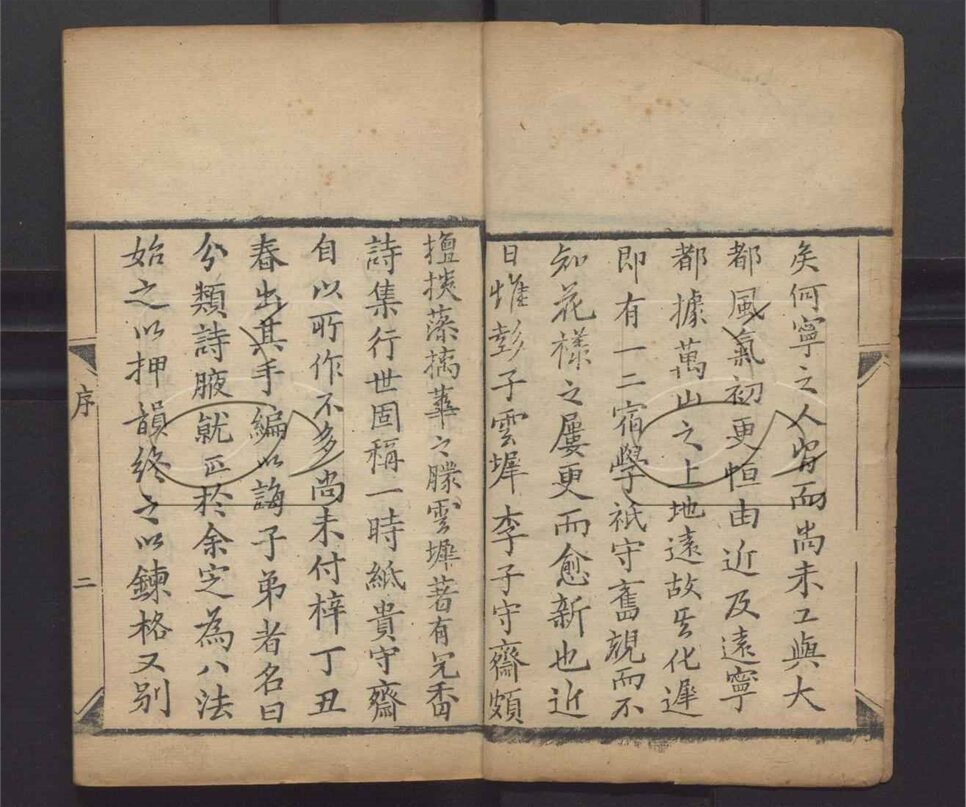 矣何寧之人習而尚未工與大
都風氣初更恒由近及遠寧
都據萬山之上地遠故其化遲
即有一二宿學祇守舊規而不
知花樣之屢更而愈新也近
日惟彭子雲墀李子守齋頗
擅掞藻摛華之勝雲墀著有
詩集行世固稱一時紙貴守齋
自以所作不多尚未付梓丁丑
春出其手編以誨子弟者名曰
分類詩腋就正於余定為八法
始之以押韻終之以鍊格又別
序
二